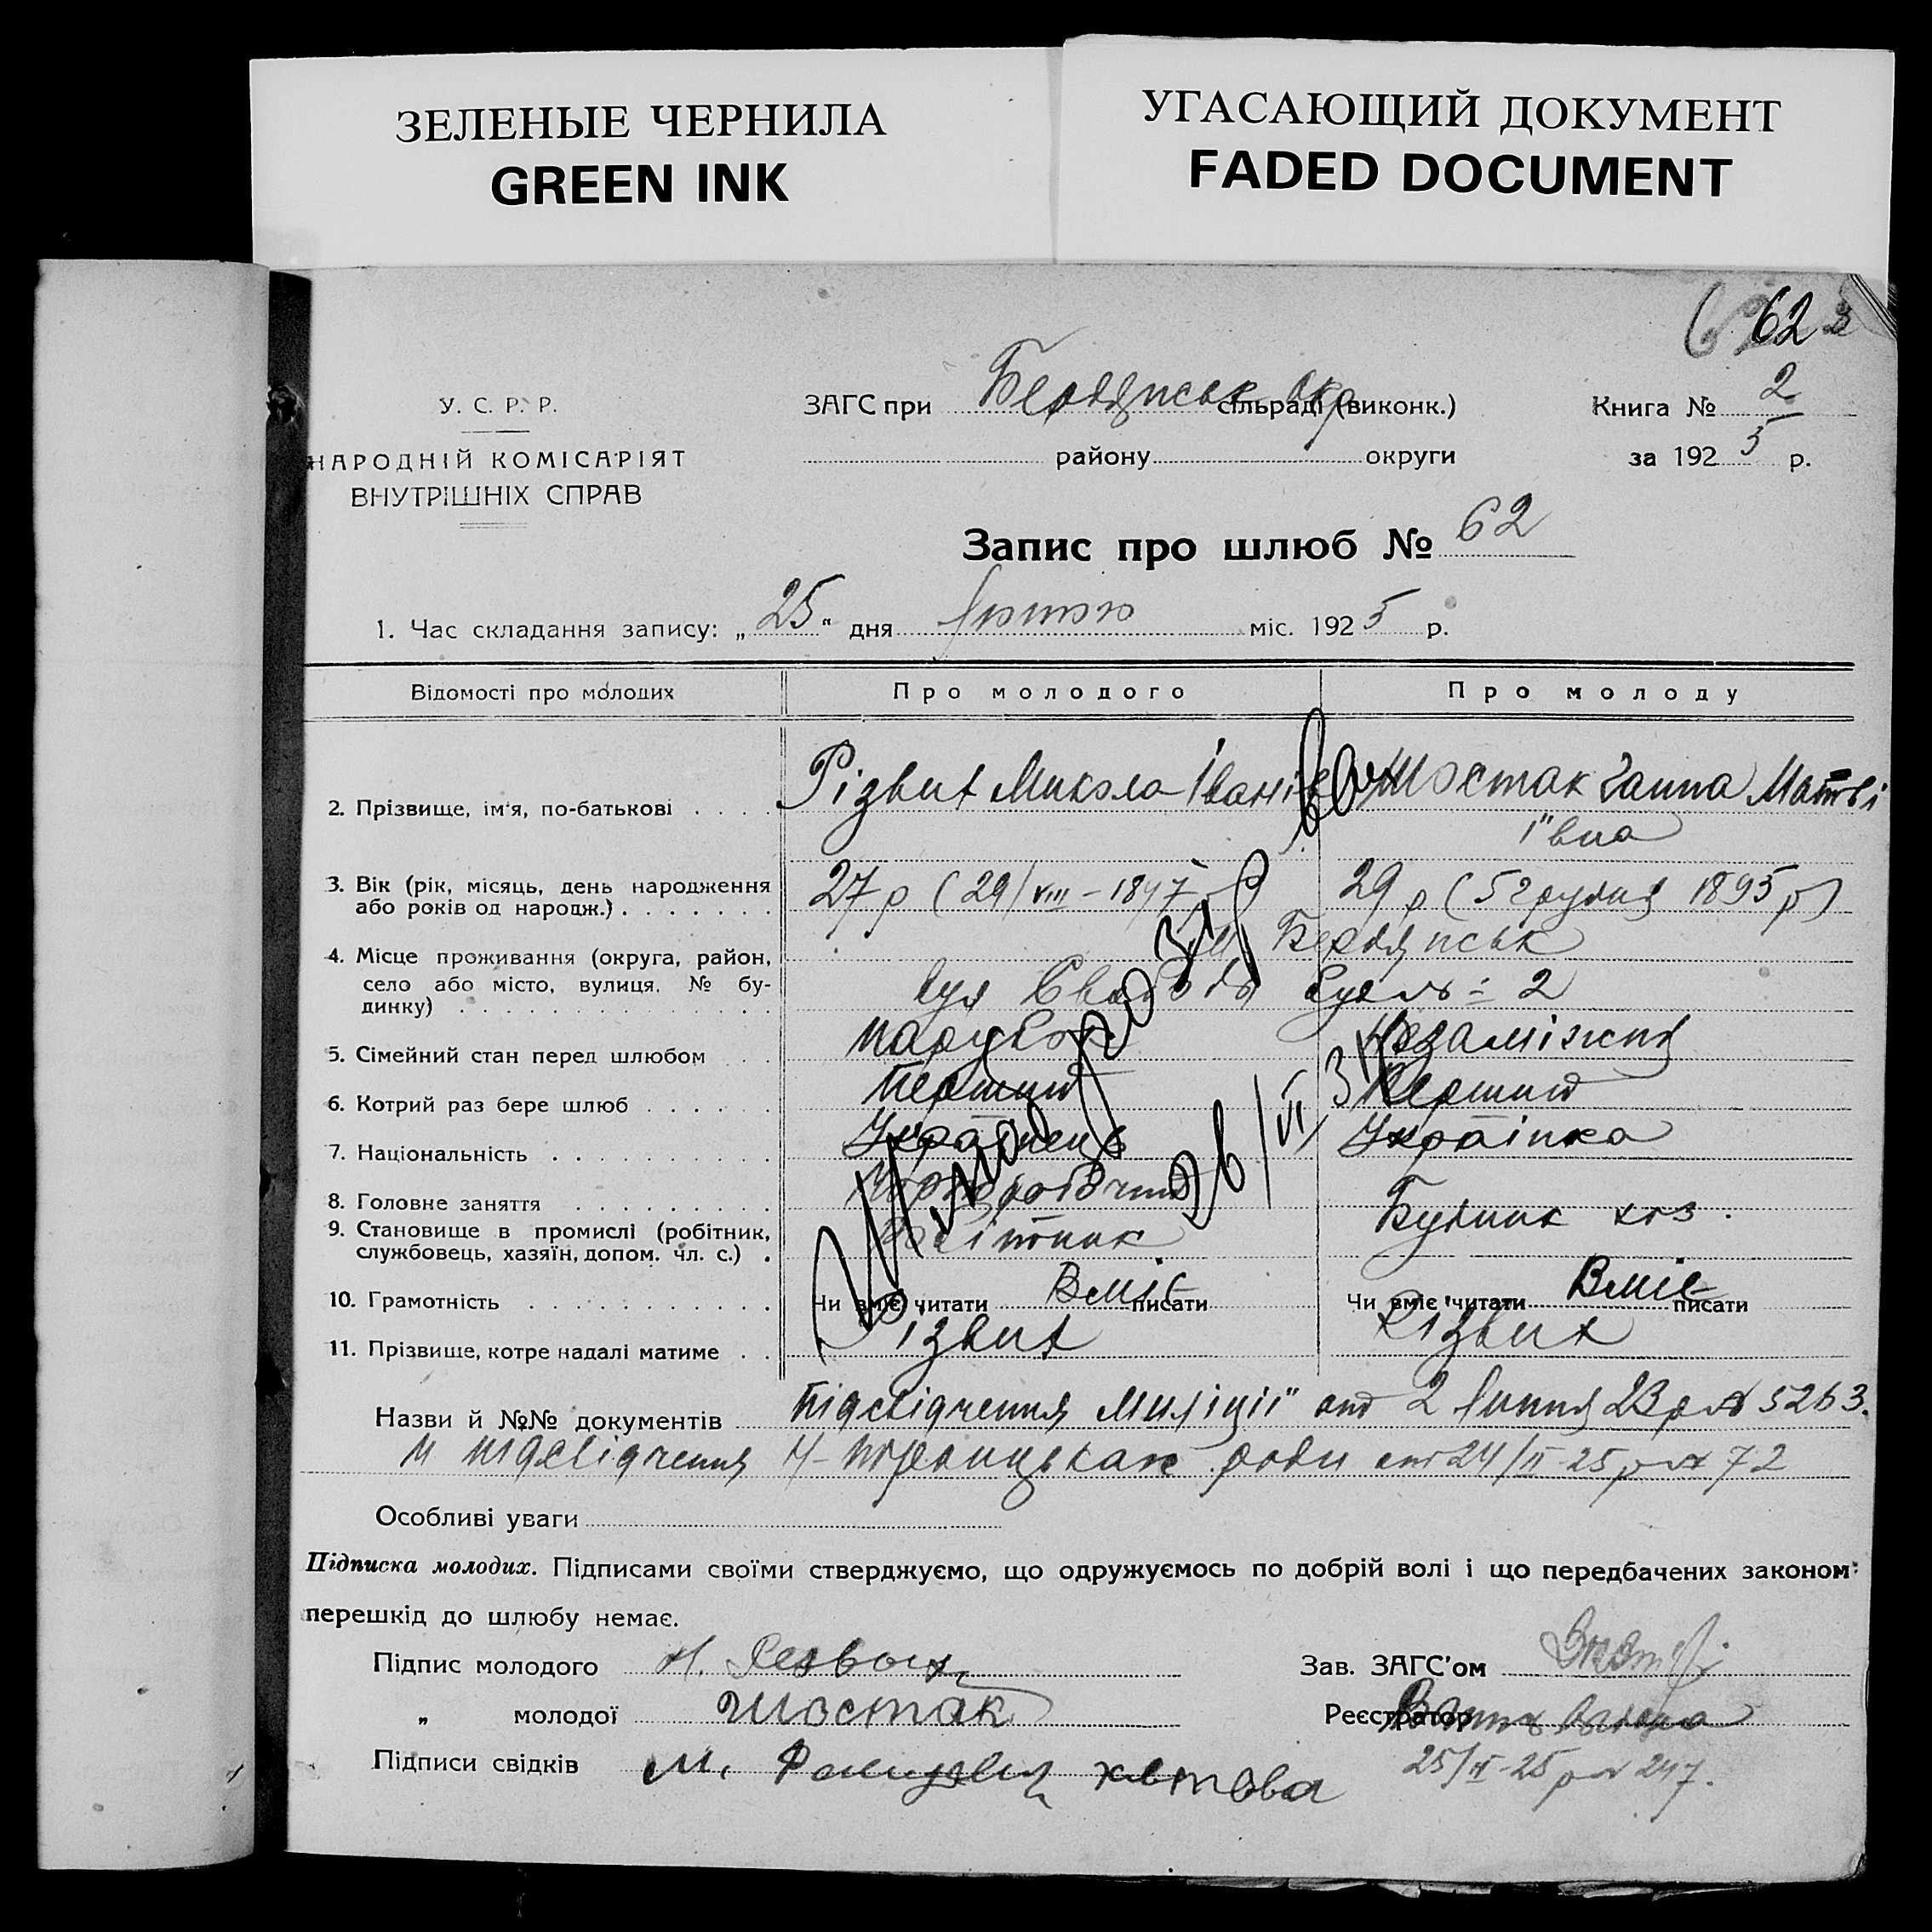 ЗЕЛЕНЫЕ ЧЕРНИЛА
GREEN INK
УГАСАЮЩИЙ ДОКУМЕНТ
FADED DOCUMENT
62
У. С. Р. Р.
НАРОДНІЙ КОМІСАРІЯТ
ВНУТРІШНІХ СПРАВ
ЗАГС при Бердянськ окр сільраді (виконк.)
району округи
Книга № 2
за 1925 р.
Запис про шлюб № 62
1. Час складання запису: „25" дня Лютого міс. 1925 р.
Відомості про молодих Про молодого Про молоду
2. Прізвище, ім'я, по-батькові Різвих Микола Іванів Шостак Ганна Матві
ївна
3. Вік (рік, місяць, день народження 27 р (29/VIII-1897 р) 29 р (5 грудня 1895 р)
або років од народж.)
4. Місце проживання (округа, район, м Бердянськ
село або місто, вулиця, № бу- вул 2
динку)
5. Сімейний стан перед шлюбом парубок незаміжня
6. Котрий раз бере шлюб Перший Перший
7. Національність Українець Українка
8. Головне заняття Чорноробочий
9. Становище в промислі (робітник, Робітник Будинк хоз.
службовець, хазяїн, допом. чл. с.)
10. Грамотність Чи вміє читати Вміє писати Чи вміє читати Вміє писати
11. Прізвище, котре надалі матиме Різвих Різвих
26/VI 31
Назви й №№ документів Підсвідчення Міліції от 2 Липня 23 р № 5263.
и підсвідчення ради от 24/II-25 р № 72
Особливі уваги
Підписка молодих. Підписами своїми стверджуємо, що одружуємось по добрій волі і що передбачених законом
перешкід до шлюбу немає.
Підпис молодого Н. Резвых
Зав. ЗАГС'ом
„ молодої Шостак
Реєстратор
Підписи свідків М.
25/II-25 р № 247.